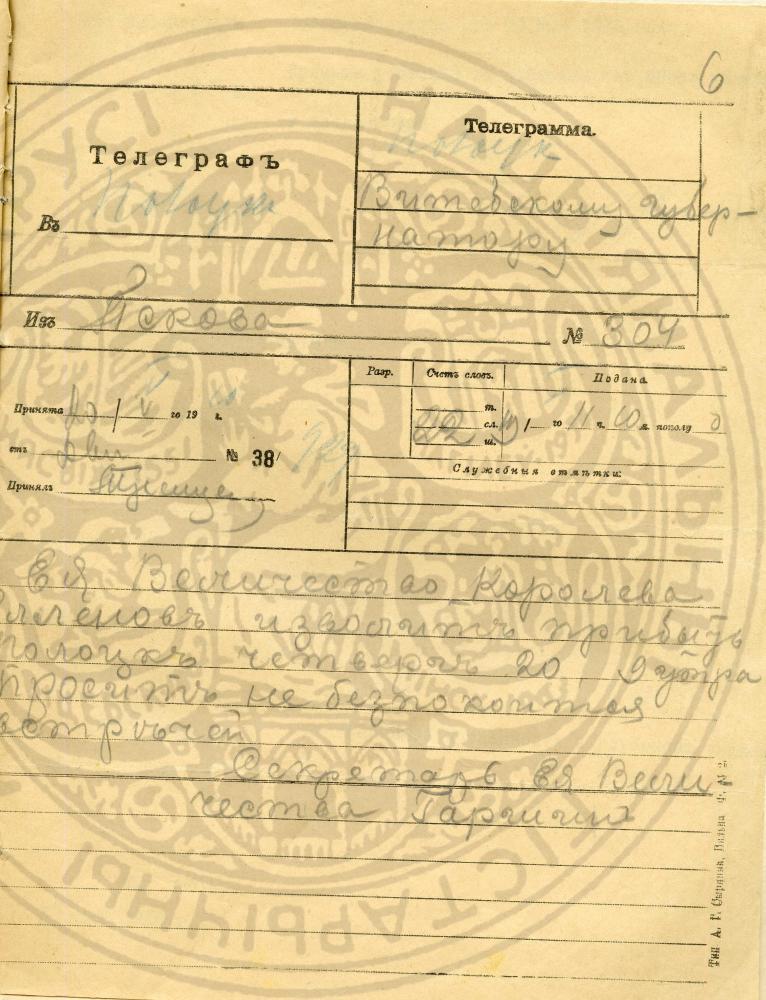 6
Телеграфъ
Въ Полоцкъ
Телеграмма.
Полоцк
Витебскому губер-
натору
Изъ Пскова
№ 304
Принята
го 19 г.
отъ
№ 38/
Принялъ
Разр.
Счетъ словъ.
Подана.
22
т.
сл.
ш.
го 11 ч. 10 м. пополу д
Служебныя отмѣтки:
Ея Величество Королева
Элленовъ изволитъ прибыть
Полоцкъ четвергъ 20 9 утра
проситъ не безпокоится
встрѣчей
Секретарь Ея Вели-
чества Гаршин
Тип. А. Г. Сыркина, Вильна